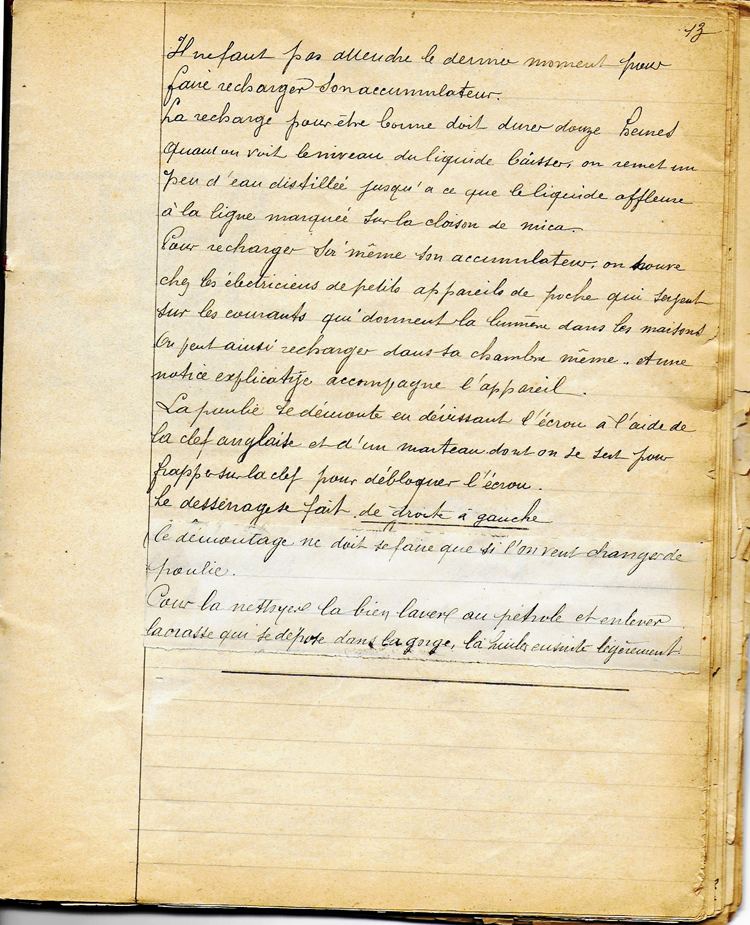 13
Il ne faut pas attendre le dernier moment pour
faire recharger son accumulateur.
La recharge pour être bonne doit durer douze heures
Quand on voit le niveau du liquide baisser, on remet un
peu d'eau distillée jusqu'a ce que le liquide affleure
à la ligne marqueé sur la cloison de mica.
Pour recharger soi même son accumulateur, on trouve
chez les électriciens de petits appareils de poche qui servent
sur les courants qui donnent la lumière dans les maisons
On peut ainsi recharger dans sa chambre même. et une
notice explicative accompagne l'appareil.
La poulie se démonte en dévissant l'écrou à l'aide de
la clef anglaise et d'un marteau dont on se sert pour
frapper sur la clef pour débloquer l'écrou.
Le desserrage se fait de droite à gauche
Ce démontage ne doit se faire que si l'on veut changer de
poulie.
Pour la nettoyer la bien laver au pétrole et enlever
la crasse qui se dépose dans la gorge, la huiler ensuite légèrement